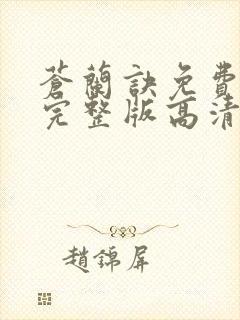 蒼蘭訣免費
完整版高清
趙錦屏